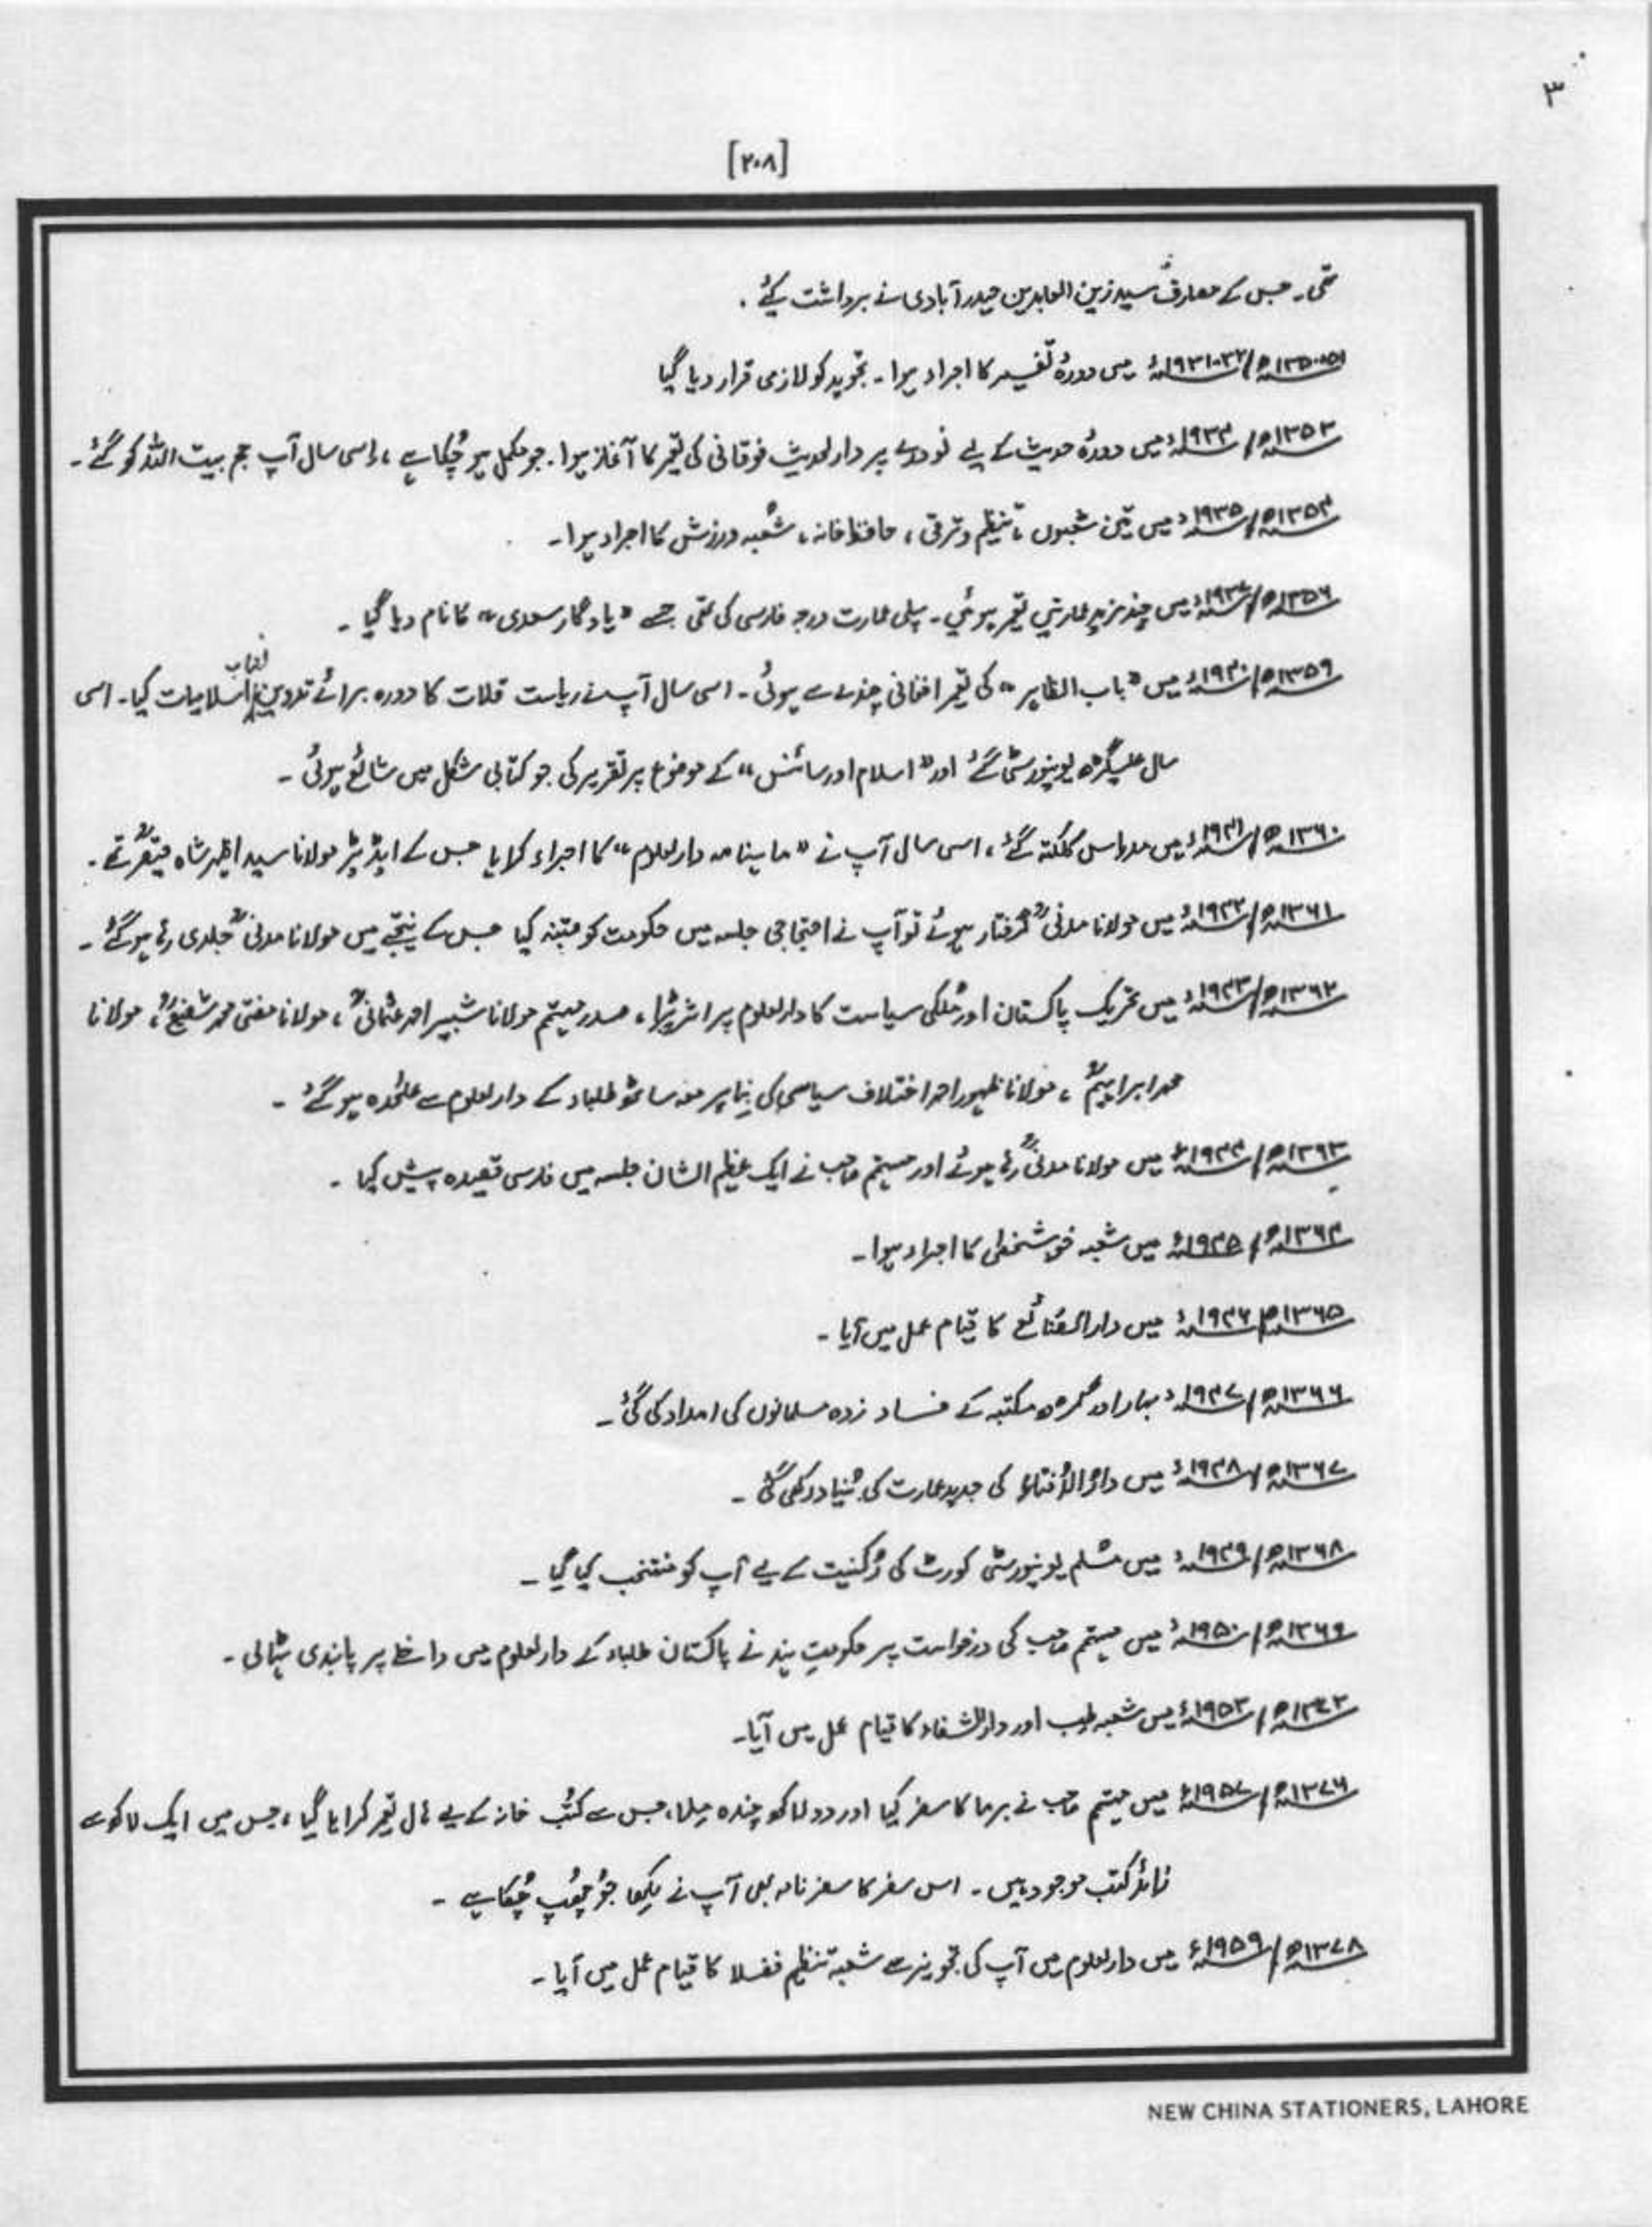 ۳
[۲۰۸]
تھی۔ جس کے مصارف سید زین العابدین حیدر آبادی نے برداشت کیے۔
۵۱-۱۳۵۰ھ/۳۲-۱۹۳۱ء میں دورۂ تفسیر کا اجراء ہوا۔ تجوید کو لازمی قرار دیا گیا
۱۳۵۳ھ/۱۹۳۴ء میں دورۂ حدیث کے لیے نودرے پر دارلحدیث فوقانی کی تعمیر کا آغاز ہوا۔ جو مکمل ہو چُکا ہے، اِسی سال آپ حج بیت اللہ کو گئے۔
۱۳۵۴ھ/۱۹۳۵ء میں تین شعبوں، تنظیم و ترقی، حافظ خانہ، شُعبہ ورزش کا اجراء ہوا۔
۱۳۵۶ھ/۱۹۳۷ء میں چند مزید عمارتیں تعمیر ہوئیں۔ پہلی عمارت درجہ فارسی کی تھی جسے "یادگار سعدی" کا نام دیا گیا۔
۱۳۵۹ھ/۱۹۴۰ء میں "باب الظاہر" کی تعمیر افغانی چندے سے ہوئی۔ اسی سال آپ نے ریاست قلات کا دورہ برائے تدوین نصاب اسلامیات کیا۔ اسی
سال علیگڑھ یونیورسٹی گئے اور "اسلام اور سائنس" کے موضوع پر تقریر کی جو کتابی شکل میں شائع ہوئی۔
۱۳۶۰ھ/۱۹۴۱ء میں مدراس کلکتہ گئے، اسی سال آپ نے "ماہنامہ دارلعلوم" کا اجراء کرایا جس کے ایڈیٹر مولانا سید ازہر شاہ قیصرؒ تھے۔
۱۳۶۱ھ/۱۹۴۲ء میں مولانا مدنیؒ گرفتار ہوئے تو آپ نے احتجاجی جلسہ میں حکومت کو متبنہ کیا جس کے نتیجے میں مولانا مدنیؒ جلدی رہا ہو گئے۔
۱۳۶۲ھ/۱۹۴۳ء میں تحریک پاکستان اور مُلکی سیاست کا دارلعلوم پر اثر پڑا، صدر مہتمم مولانا شبیر احمد عثمانیؒ، مولانا مفتی محمد شفیعؒ، مولانا
محمد ابراہیمؒ، مولانا ظہور احمد اختلاف سیاسی کی بِنا پر معہ ساٹھ طلباء کے دارلعلوم سے علٰحدہ ہو گئے۔
۱۳۶۳ھ/۱۹۴۴ء میں مولانا مدنیؒ رہا ہوئے اور مہتمم صاحب نے ایک عظیم الشان جلسہ میں فارسی قصیدہ پیش کیا۔
۱۳۶۴ھ/۱۹۴۵ء میں شعبہ خوشخطی کا اجراء ہوا۔
۱۳۶۵ھ/۱۹۴۶ء میں دارالصّنائع کا قیام عمل میں آیا۔
۱۳۶۶ھ/۱۹۴۷ء بہار اور گڑھ مکتبہ کے فساد زدہ مسلمانوں کی امداد کی گئی۔
۱۳۶۷ھ/۱۹۴۸ء میں دارُالاُفتاء کی جدید عمارت کی بُنیاد رکھی گئی۔
۱۳۶۸ھ/۱۹۴۹ء میں مُسلم یونیورسٹی کورٹ کی رُکنیت کے لیے آپ کو منتخب کیا گیا۔
۱۳۶۹ھ/۱۹۵۰ء میں مہتمم صاحب کی درخواست پر حکومتِ ہند نے پاکستان طلباء کے دارلعلوم میں داخلے پر پابندی ہٹالی۔
۱۳۷۲ھ/۱۹۵۳ء میں شعبہ طب اور دارالشفاء کا قیام عمل میں آیا۔
۱۳۷۶ھ/۱۹۵۷ء میں مہتمم صاحب نے برما کا سفر کیا اور دو لاکھ چندہ مِلا، جس سے کتُب خانہ کے لیے ہال تعمیر کرایا گیا، جس میں ایک لاکھ سے
زائد کتب موجود ہیں۔ اس سفر کا سفر نامہ بھی آپ نے لِکھا جو چھُپ چُکا ہے۔
۱۳۷۸ھ/۱۹۵۹ء میں دارلعلوم میں آپ کی تجویز سے شعبہ تنظیم فضلا کا قیام عمل میں آیا۔
NEW CHINA STATIONERS, LAHORE